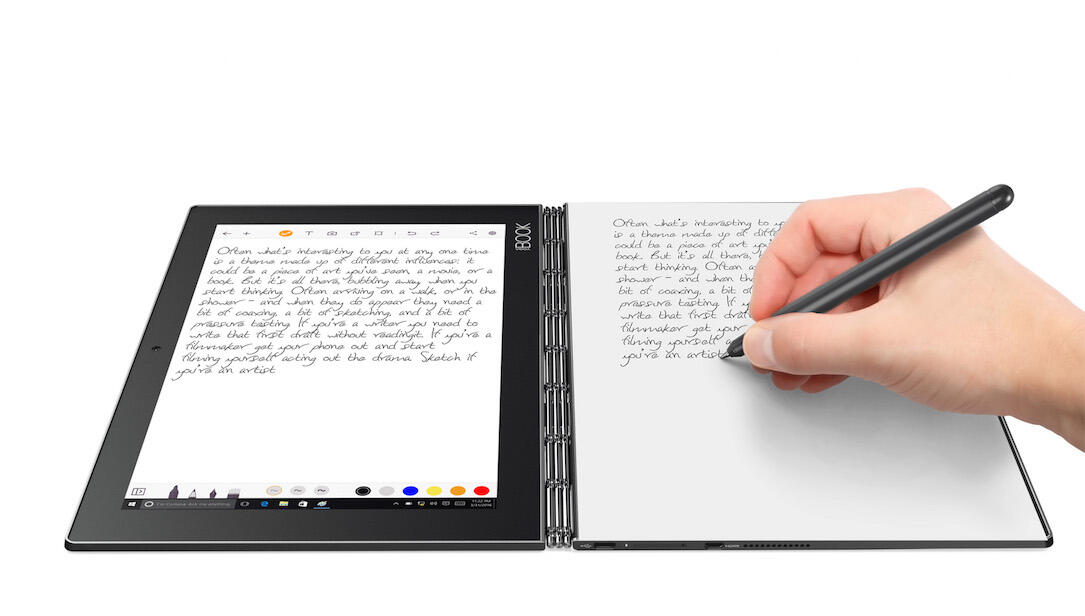 Often what's interesting to you at any one time
is a theme made up of different influences: it
could be a piece of art you've seen, a movie, or a
book. But it's all there, bubbling away when you
start thinking. Often arriving on a walk, or in the
shower - and when they do appear they need a
bit of coaxing, a bit of sketching, and a bit of
pressure testing. If you're a writer you need to
write that first draft without readingit. If you're a
filmmaker get your phone out and start
filming yourself acting out the drama. Sketch if
you're an artist
I'm Cortana. Ask me anything.
11:22 PM
BOOK
Often what's interesting to
is a theme made up of
could be a piece of art
book. But it's all there,
start thinking. Often
shower - and when
bit of coaxing, a bit of
pressure testing. If
write that first
filmmaker get your
filming yourself
you're an artist
HDMI